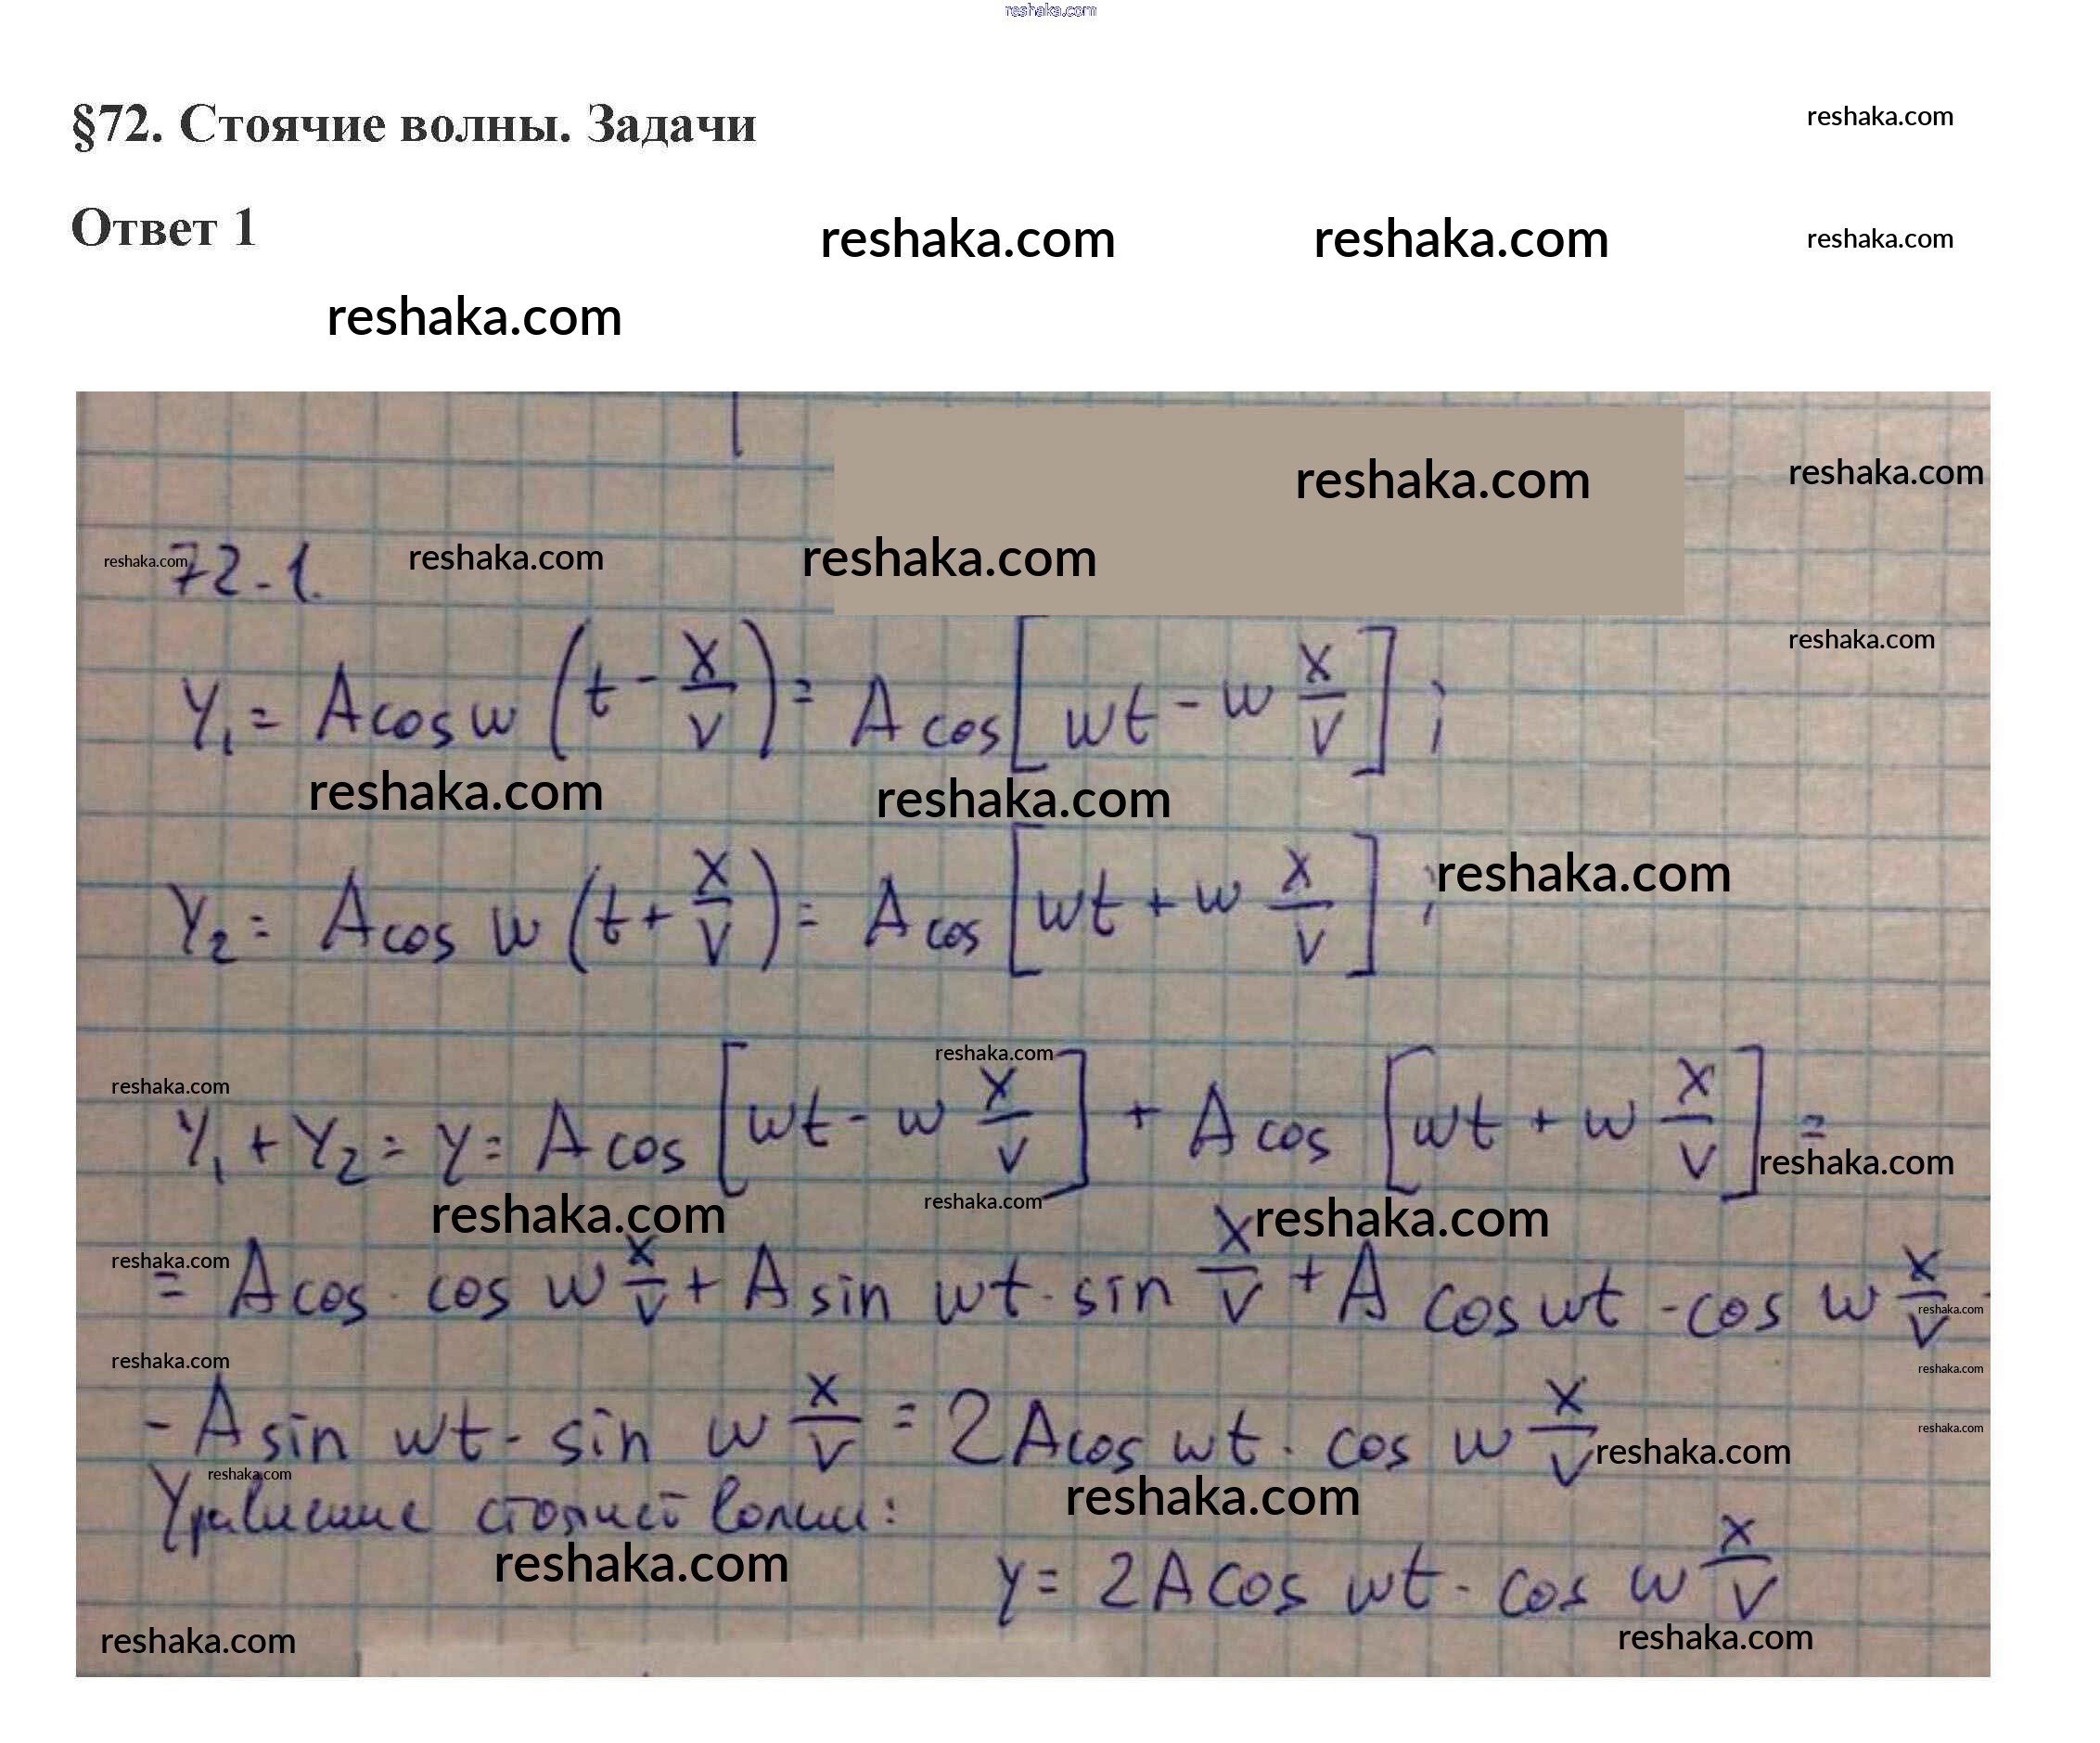 reshaka.com
§72. Стоячие волны. Задачи reshaka.com
Ответ 1 reshaka.com reshaka.com reshaka.com
reshaka.com
reshaka.com reshaka.com
reshaka.com 72-1. reshaka.com reshaka.com
reshaka.com
Y₁ = A cos w (t - x/v) = A cos [wt - w x/v] ;
reshaka.com reshaka.com
Y₂ = A cos w (t + x/v) = A cos [wt + w x/v] ; reshaka.com
reshaka.com reshaka.com
Y₁ + Y₂ = y = A cos [wt - w x/v] + A cos [wt + w x/v] =
reshaka.com
reshaka.com reshaka.com reshaka.com
reshaka.com
= A cos · cos w x/v + A sin wt · sin x/v + A cos wt - cos w x/v -
reshaka.com
reshaka.com reshaka.com
- A sin wt - sin w x/v = 2A cos wt · cos w x/v
reshaka.com reshaka.com
reshaka.com reshaka.com
Уравнение стоячей волны:
reshaka.com
y = 2A cos wt · cos w x/v
reshaka.com reshaka.com